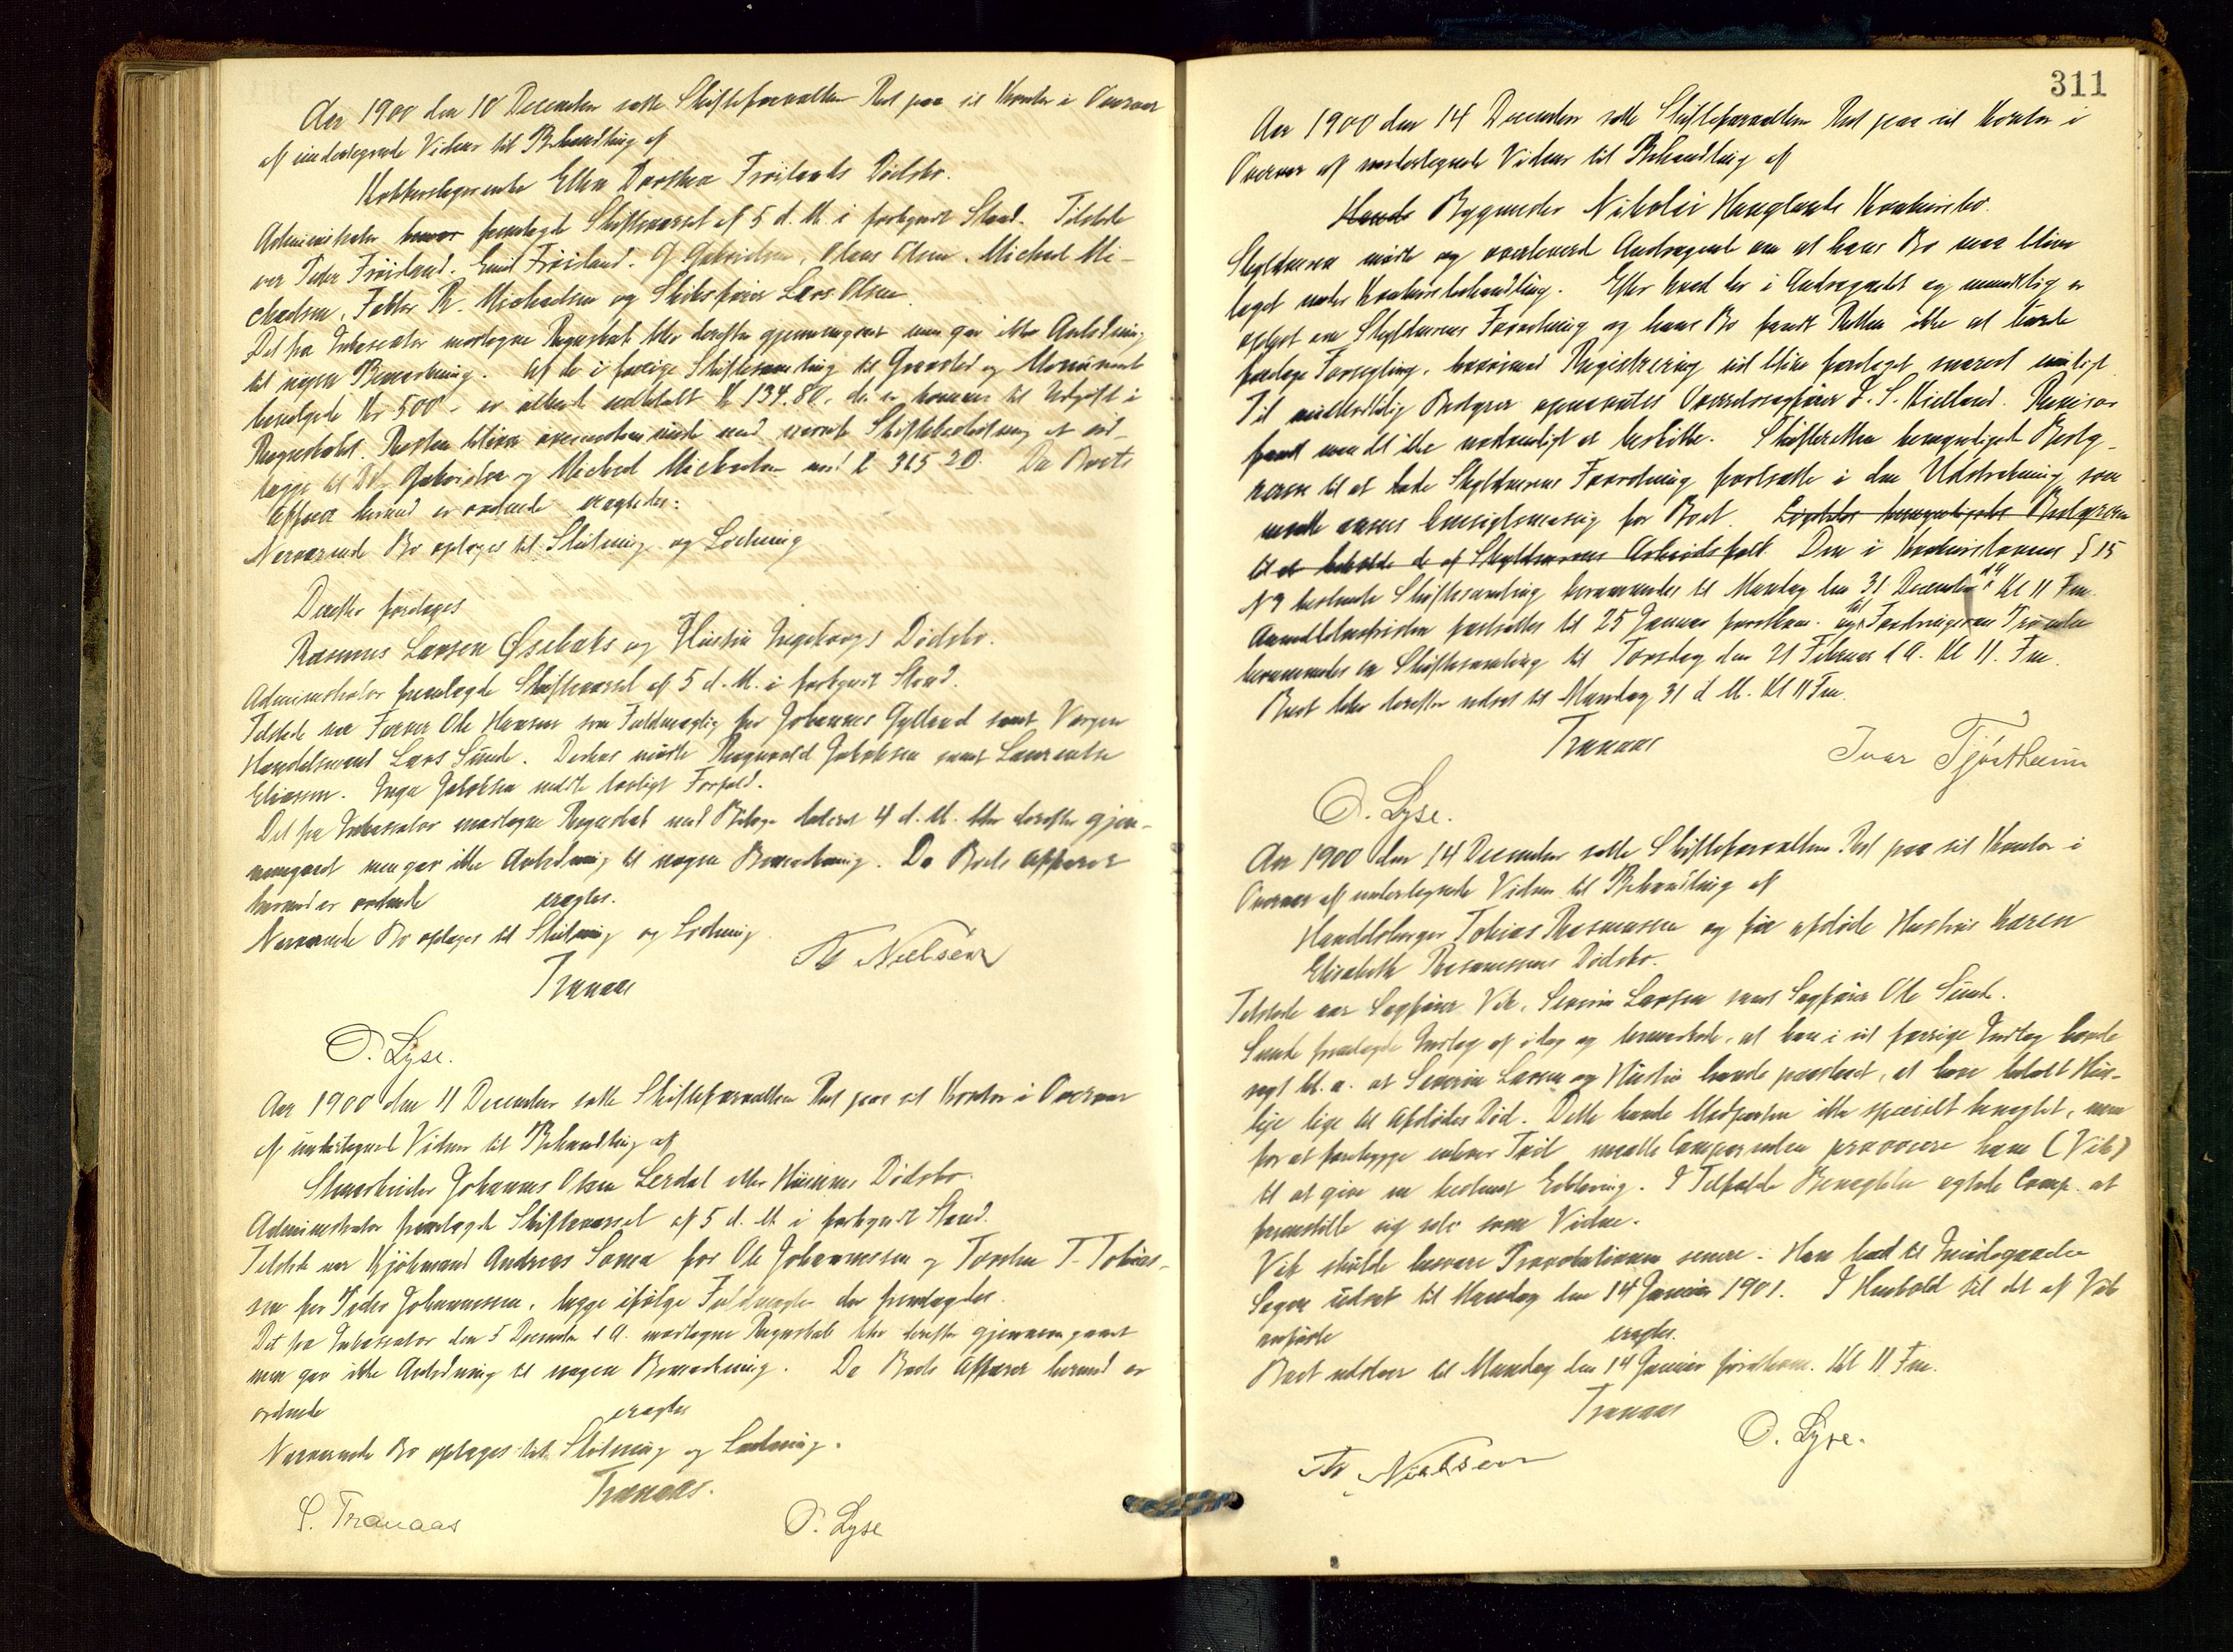 Aar 1900 den 10 December satte Skifteforvalteren Ret paa sit Kontor i Overvær
af undertegnede Vidner til Behandling af
Kobberslagerenke Ellen Dorthea Frøilands Dødsbo.
Administrator fremlagde Skiftevarsel af 5 d. M. i forkyndt Stand. Tilstede
var Peder Frøiland. Emil Frøiland. G. Gabrielsen, Olaus Olsen. Michael Mi-
chaelsen, Faktor R. Michaelsen og Skibsfører Lars Olsen.
Det fra Inkassator modtagne Regnskab blev derefter gjennemgaaet men gav ikke Anledning
til nogen Bemærkning. Af de i forrige Skiftesamling til Gravsted og Monument
bevilgede Kr 500 - er allerede udbetalt Kr 134.80, der er kommen til Udgift i
Regnskabet. Resten bliver overensstemmende med nævnte Skiftebeslutning at ud-
lægge til Gabrielsen og Michael Michaelsen med Kr 365 20. Da Boets
Affærer hermed er ordnede eragtedes:
Nærværende Bo optages til Slutning og Lodning
Derefter foretoges
Rasmus Larsen Øsebaks og Hustru Ingeborgs Dødsbo.
Administrator fremlagde Skiftevarsel af 5 d. M. i forkyndt Stand.
Tilstede var Farver Ole Hansen som Fuldmægtig for Johannes Gylland samt Værgen
Handelsmand Lars Sunde. Desuden mødte Ragnvald Jakobsen samt Laurentse
Eliassen. Inga Jakobsen meldte lovligt Forfald.
Det fra Inkassator modtagne Regnskab med Bilage dateret 4 d. M. blev derefter gjen-
nemgaaet men gav ikke Anledning til nogen Bemærkning. Da Boets Affærer
hermed er ordnede eragtes.
Nærværende Bo optages til Slutning og Lodning
Th Nielsen
Tranaas
O. Lyse.
Aar 1900 den 11 December satte Skifteforvalteren Ret paa sit Kontor i Overvær
af undertegnede Vidner til Behandling af
Stenarbeider Johannes Olsen Lerdal eller Dødsbo.
Administrator fremlagde Skiftevarsel af 5 d. M. i forkyndt Stand.
Tilstede var Kjøbmand Andreas Soma for Ole Johannessen og Torsten T. Tobias-
sen for Peder Johannessen, begge ifølge Fuldmagter der fremlagdes.
Det fra Inkassator den 5 December d A. modtagne Regnskab blev derefter gjennemgaaet
men gav ikke Anledning til nogen Bemærkning. Da Boets Affærer hermed er
ordnede eragtes
Nærværende Bo optages til Slutning og Lodning.
Tranaas.
S. Tranaas
O. Lyse
311
Aar 1900 den 14 December satte Skifteforvalteren Ret paa sit Kontor i
Overvær af undertegnede Vidner til Behandling af
Bygmester Nikolai Hauglands Konkursbo.
Skyldneren mødte og overleverede Andragende om at hans Bo maa blive
taget under Konkursbehandling. Efter hvad der i Andragendet og mundtlig er
oplyst om Skyldnerens Forretning og hans Bo fandt Retten ikke at burde
foretage Forsegling, hvorimod Registrering vil blive foretaget snarest muligt.
Til midlertidig Bestyrer opnævntes Overretssagfører J. S. Kielland. Revisor
fandt man det ikke nødvendigt at beskikke. Skifteretten bemyndigede Besty-
reren til at lade Skyldnerens Forretning fortsætte i den Udstrækning som
maatte ansees hensigtsmæssig for Boet. Ligeledes bemyndigedes Bestyreren
til at beholde de af Skyldnerens Arbeidsfolk Den i Konkurslovens § 15
No 3 bestemte Skiftesamling berammedes til Mandag den 31 December d. A. Kl 11 Fm.
Anmeldelsesfristen fastsattes til 25 Januar førstkom. og til Fordringernes Prøvelse
berammedes en Skiftesamling til Torsdag den 21 Februar d A. Kl 11. Fm.
Boet blev derefter udsat til Mandag 31 d M. Kl 11 Fm.
Tranaas
Ivar Tjøstheim
O. Lyse.
Aar 1900 den 14 December satte Skifteforvalteren Ret paa sit Kontor i
Overvær af undertegnede Vidner til Behandling af
Handelsborger Tobias Rasmussen og før afdøde Hustru Karen
Elisabeth Rasmussens Dødsbo.
Tilstede var Sagfører Vik, Severin Larsen samt Sagfører Ole Sunde.
Sunde fremlagde Indlæg af idag og bemærkede, at han i sit forrige Indlæg havde
sagt bl. a. at Severin Larsen og Hustru havde paastaaet, at have betalt Hus-
leje lige til Afdødes Død. Dette havde Modparten ikke specielt benegtet, men
for at forebygge enhver Tvil maatte Comparenten provocere ham (Vik)
til at give en bestemt Erklæring. I Tilfælde Benegtelse agtede Comp. at
fremstille sig selv som Vidne.
Vik skulde besvare Provokationen senere. Han bad til Imødegaaelse
Sagen udsat til Mandag den 14 Januar 1901. I Henhold til det af Vik
anførte eragtes.
Boet udstaar til Mandag den 14 Januar førstkom. Kl 11 Fm.
Tranaas
O. Lyse.
Th Nielsen